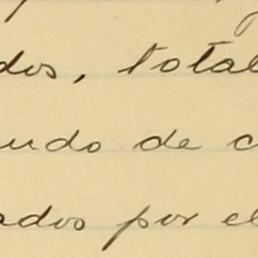 dos, total
ndo de c
ados por el